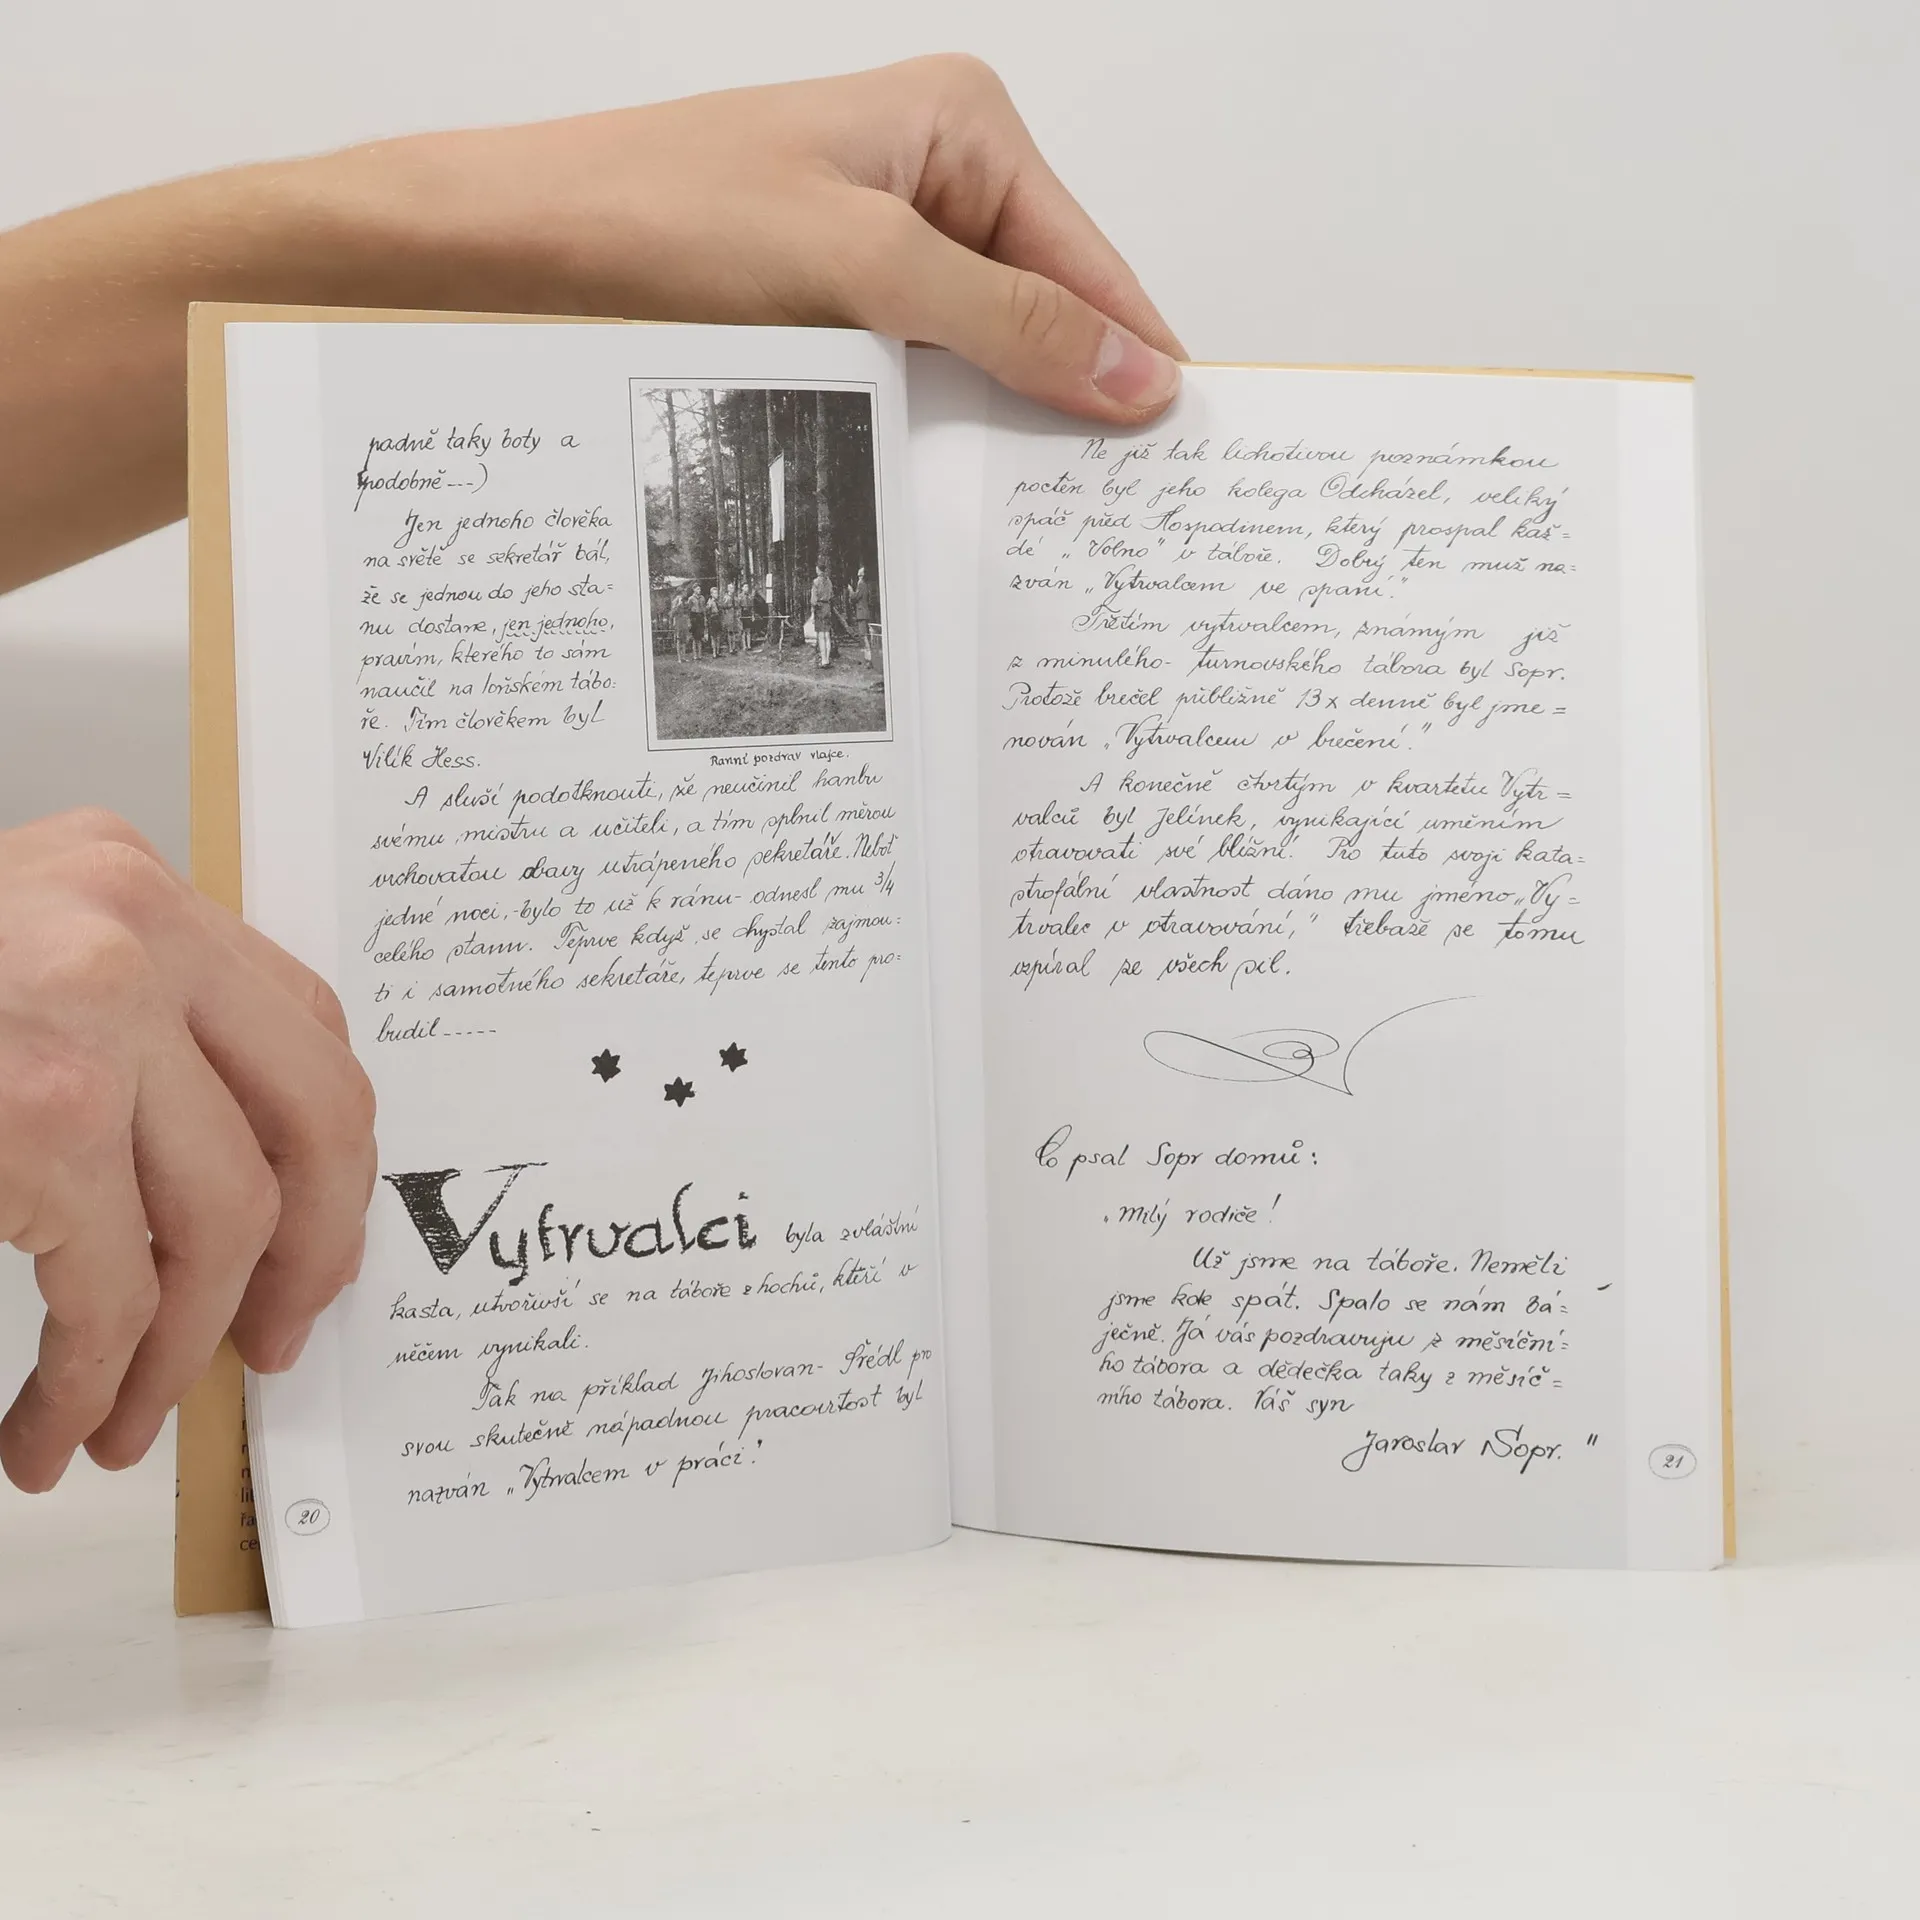 padně taky boty a
podobně---)
Jen jednoho člověka
na světě se sekretář bál,
že se jednou do jeho sta=
nu dostane, jen jednoho,
pravím, kterého to sám
naučil na loňském tábo=
ře. Tím člověkem byl
Vilík Hess.
Ranní pozdrav vlajce.
A sluší podotknouti, že neučinil hanbu
svému mistru a učiteli, a tím splnil měrou
vrchovatou obavy utrápeného sekretáře. Neboť
jedné noci,-bylo to už k ránu- odnesl mu 3/4
celého stanu. Teprve když se chystal zajmou=
ti i samotného sekretáře, teprve se tento pro=
budil-----
Vytrvalci byla zvláštní
kasta, utvořivší se na táboře z hochů, kteří v
něčem vynikali.
Tak na příklad Jihoslovan- Šrédl pro
svou skutečně nápadnou pracovitost byl
nazván „Vytrvalcem v práci."
20
Ne již tak lichotivou poznámkou
poctěn byl jeho kolega Odcházel, veliký
spáč před Hospodinem, který prospal kaž=
dé „Volno" v táboře. Dobrý ten muž na=
zván „Vytrvalcem ve spaní."
Třetím vytrvalcem, známým již
z minulého- turnovského tábora byl Sopr.
Protože brečel přibližně 13x denně byl jme=
nován „Vytrvalcem v brečení."
A konečně čtvrtým v kvartetu Vytr=
valců byl Jelínek, vynikající uměním
otravovati své bližní. Pro tuto svoji kata=
strofální vlastnost dáno mu jméno „Vy=
trvalec v otravování," třebaže se tomu
vzpíral ze všech sil.
Co psal Sopr domů:
„Milý rodiče!
Už jsme na táboře. Neměli
jsme kde spát. Spalo se nám bá=
ječně. Já vás pozdravuju z měsíční=
ho tábora a dědečka taky z měsíč=
ního tábora. Váš syn
Jaroslav Sopr."
21